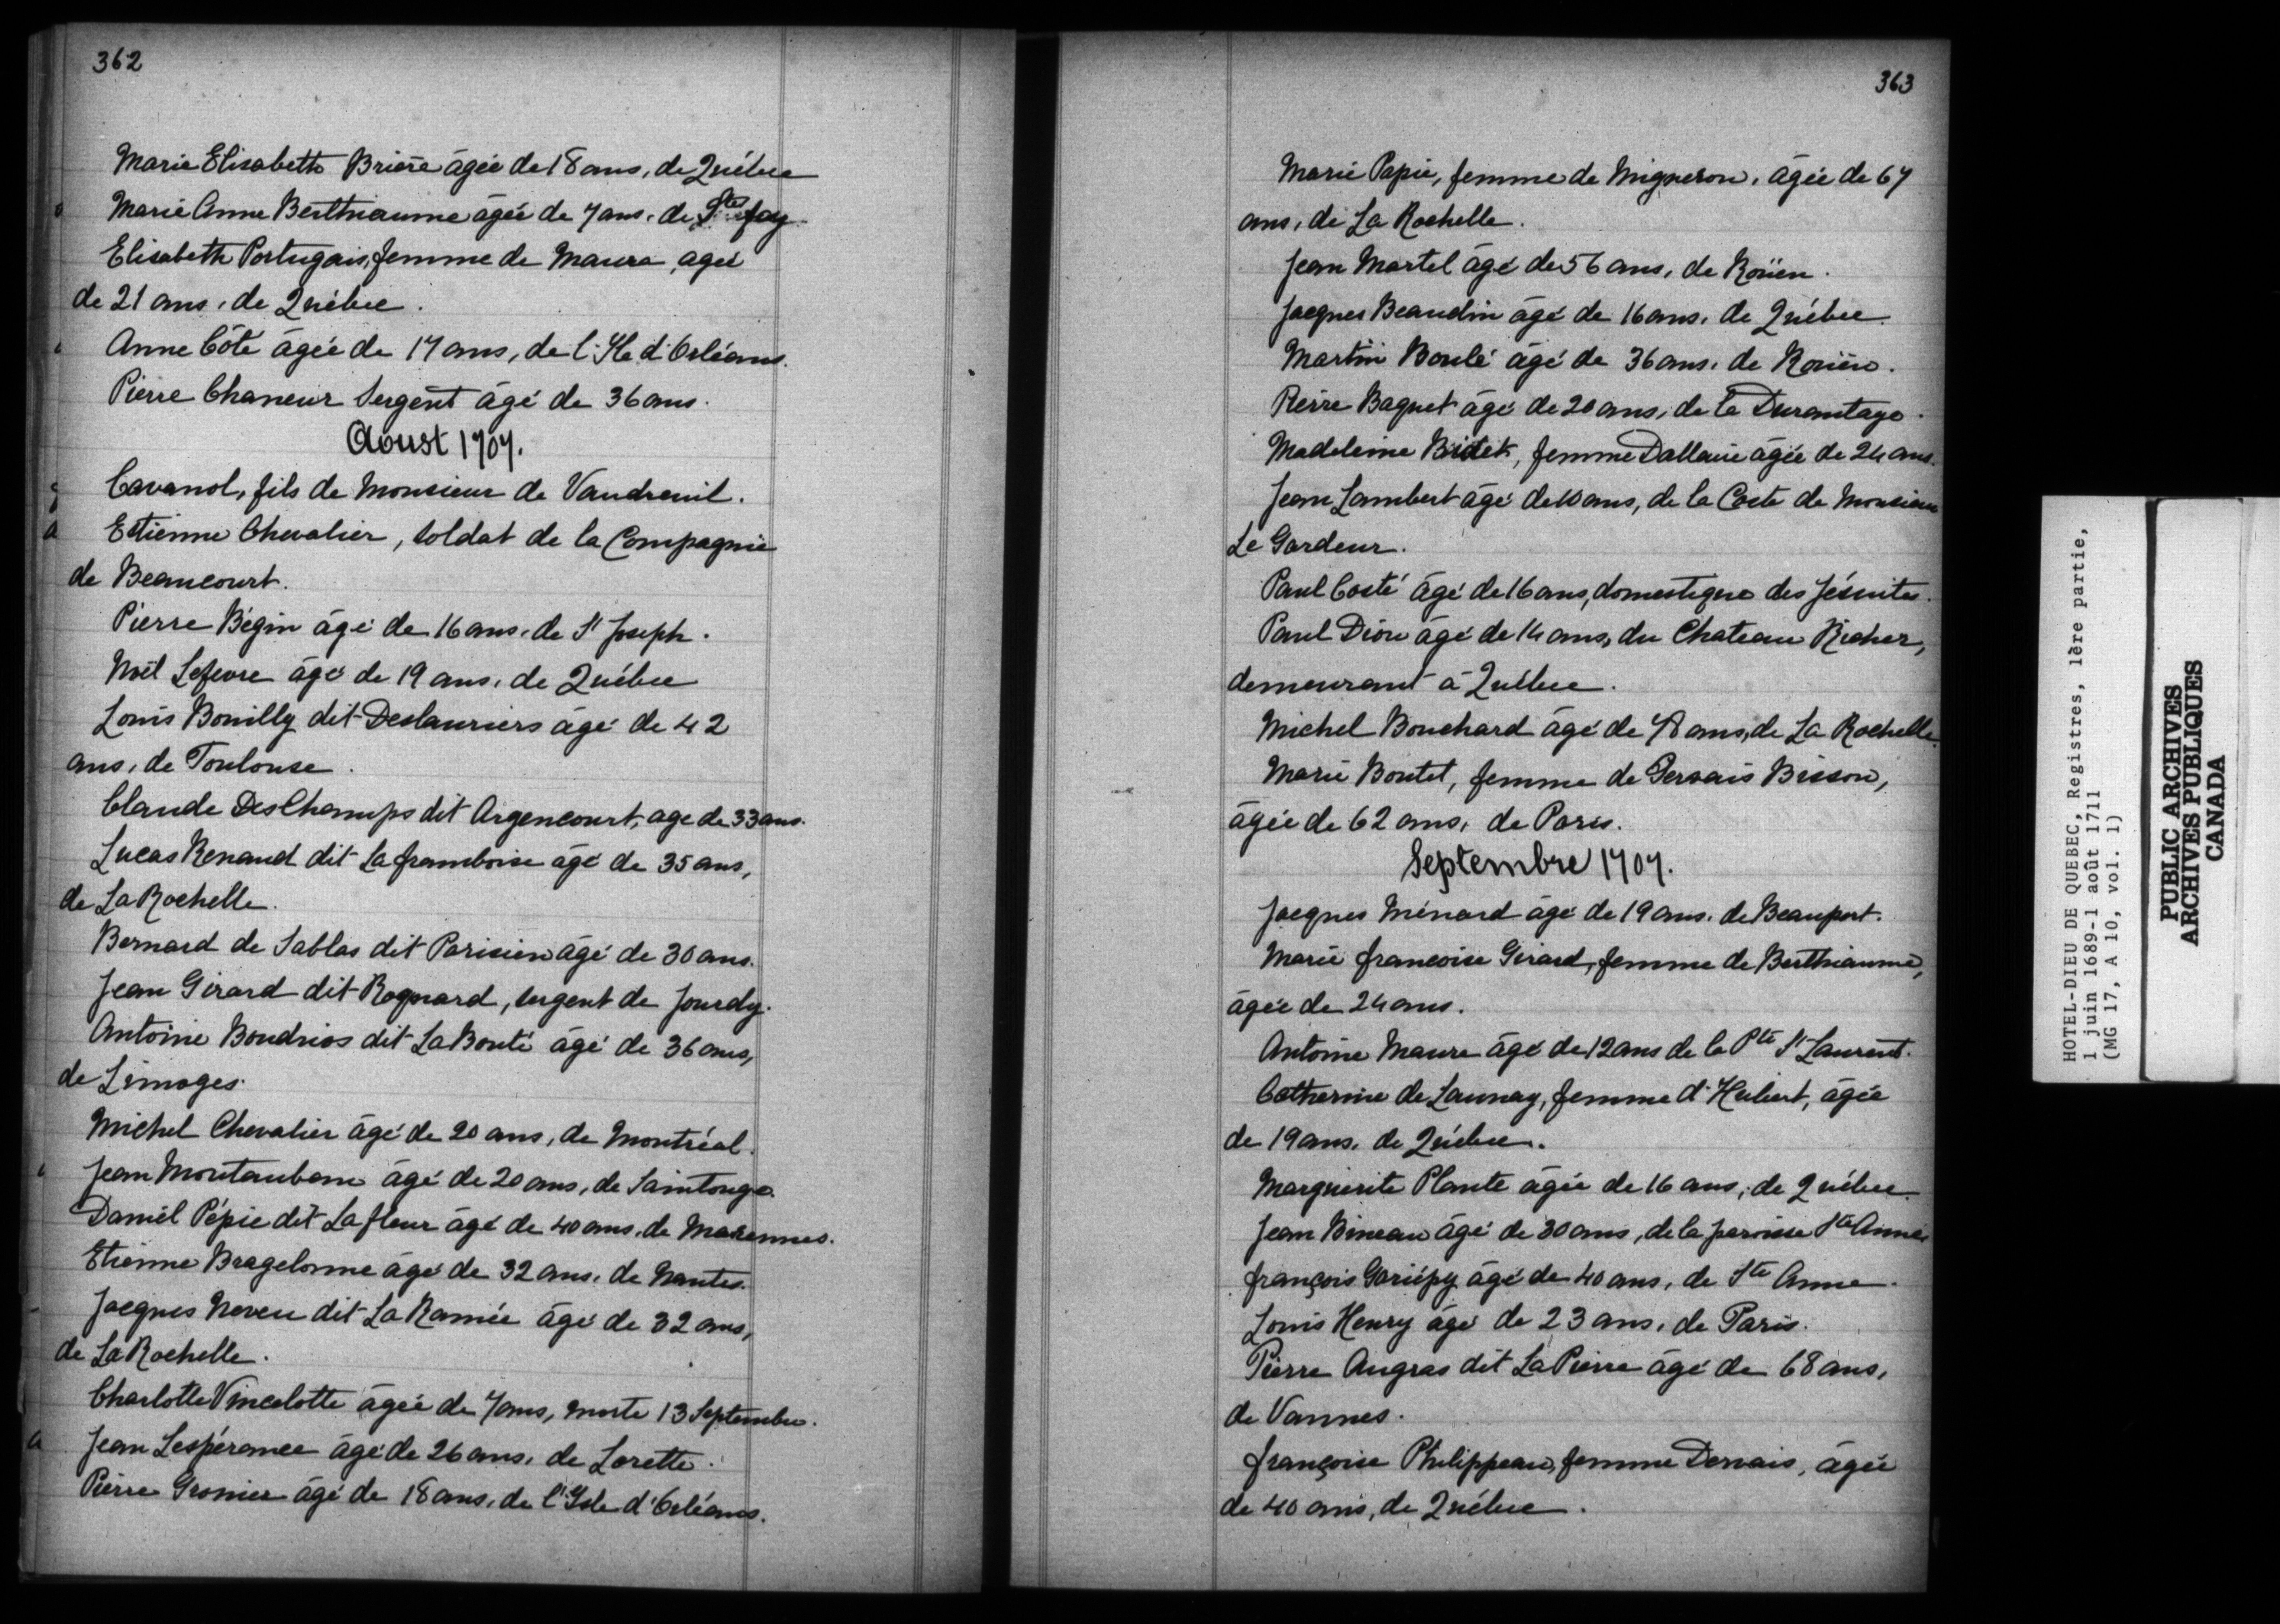 362
Marie Elisabeth Briere âgée de 18 ans, de Québec
Marie Anne Berthiaume âgée de 7 ans, de Ste foy
Elisabeth Portugais, femme de Maura, agée
de 21 ans, de Québec.
Anne Côté âgée de 17 ans, de l'Ile d'Orléans.
Pierre Chaneur Sergent âgé de 36 ans.
Aoust 1707.
Cavanol, fils de Monsieur de Vaudreuil.
Etienne Chevalier, soldat de la Compagnie
de Beaucourt.
Pierre Bégin âgé de 16 ans, de St Joseph.
Noël Lefevre âgé de 19 ans, de Québec
Louis Bouilly dit Deslauriers âgé de 42
ans, de Toulouse.
Claude DesChamps dit Argencourt, age de 33 ans.
Lucas Renaud dit La framboise âgé de 35 ans,
de La Rochelle.
Bernard de Sablas dit Parisien âgé de 30 ans.
Jean Girard dit Roquard, sergent de Jourdy.
Antoine Boudrios dit La Bonté âgé de 36 ans,
de Limoges.
Michel Chevalier âgé de 20 ans, de Montréal.
Jean Montauban âgé de 20 ans, de Saintonge.
Daniel Pépie dit La fleur âgé de 40 ans, de Marennes.
Etienne Bragelonne âgé de 32 ans, de Nantes.
Jacques Neveu dit La Ramée âgé de 32 ans,
de La Rochelle.
Charlotte Vincelotte âgée de 7 ans, morte 13 Septembre.
Jean Lespérance âgé de 26 ans, de Lorette.
Pierre Gronier âgé de 18 ans, de l'Isle d'Orléans.
363
Marie Papie, femme de Migneron, âgée de 67
ans, de La Rochelle.
Jean Martel âgé de 56 ans, de Roüen.
Jacques Beaudin âgé de 16 ans, de Québec.
Martin Boulé âgé de 36 ans, de Roüen.
Pierre Baquet âgé de 20 ans, de la Durantaye.
Madeleine Bidet, femme Dallaire âgée de 24 ans.
Jean Lambert âgé de 10 ans, de la Coste de Monsieur
Le Gardeur.
Paul Costé âgé de 16 ans, domestique des Jésuites.
Paul Dion âgé de 14 ans, du Chateau Richer,
demeurant à Québec.
Michel Bouchard âgé de 78 ans, de La Rochelle.
Marie Boutet, femme de Gervais Bisson,
âgée de 62 ans, de Paris.
Septembre 1707.
Jacques Ménard âgé de 19 ans, de Beauport.
Marie françoise Girard, femme de Berthiaume,
âgée de 24 ans.
Antoine Maure âgé de 12 ans de la Pte St Laurent.
Catherine de Launay, femme d'Hubert, âgée
de 19 ans, de Québec.
Marguerite Plante âgée de 16 ans, de Québec.
Jean Bineau âgé de 30 ans, de la paroisse Ste Anne.
françois Gariépy âgé de 40 ans, de Ste Anne.
Louis Henry âgé de 23 ans, de Paris.
Pierre Augras dit La Pierre âgé de 68 ans,
de Vannes.
françoise Philippeau, femme Dervais, âgée
de 40 ans, de Québec.
HOTEL-DIEU DE QUEBEC, Registres, 1ère partie,
1 juin 1689-1 août 1711
(MG 17, A 10, vol. 1)
PUBLIC ARCHIVES
ARCHIVES PUBLIQUES
CANADA